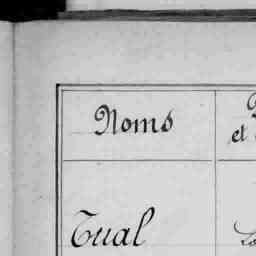 Noms
et
Tual